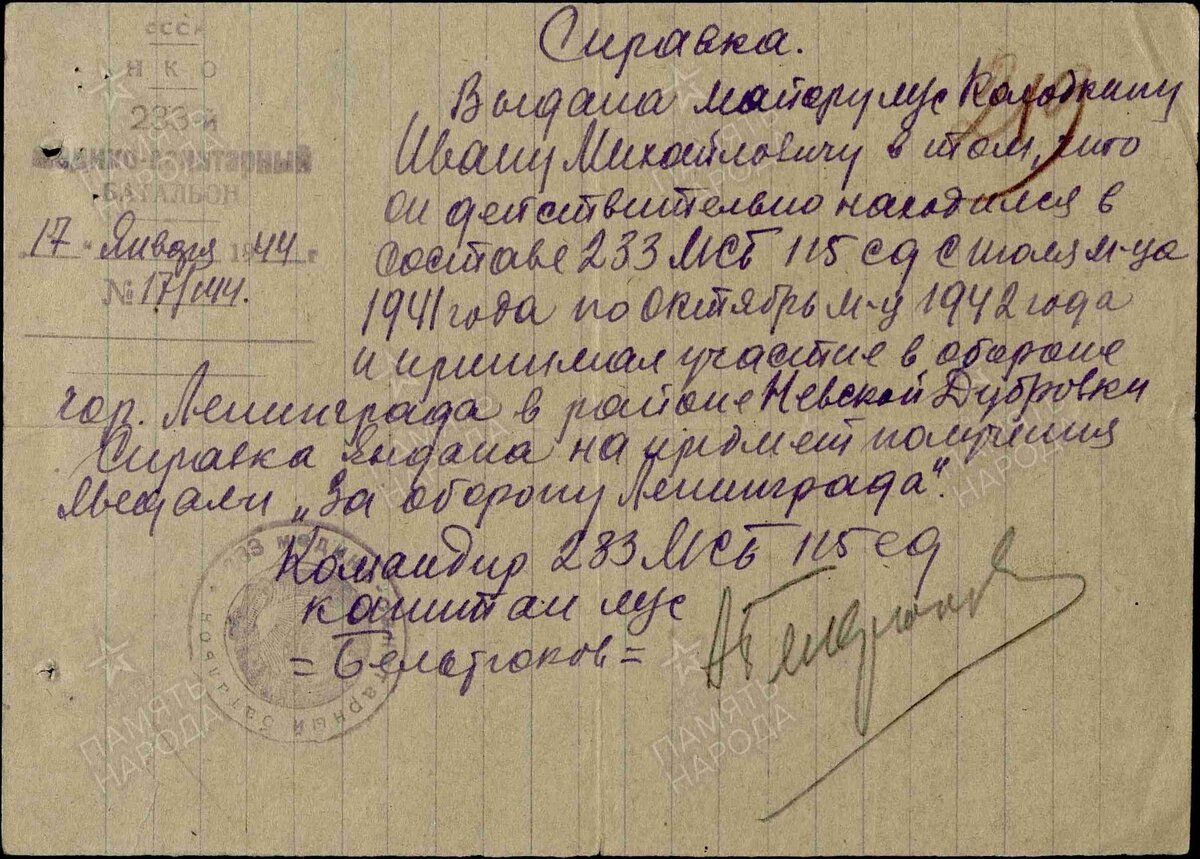 СССР
НКО
233-й
Медико-санитарный
БАТАЛЬОН
17 " Января 1944 г.
№ 17/144.
Справка.
Выдана майору м/с Колодкину
Ивану Михайловичу в том, что
он действительно находился в
составе 233 МСБ 115 сд с июля м-ца
1941 года по Октябрь м-ц 1942 года
и принимал участие в обороне
гор. Ленинграда в районе Невской Дубровки
Справка выдана на предмет получения
медали „За оборону Ленинграда".
Командир 233 МСБ 115 сд
капитан м/с
= =
233 медико-санитарный батальон
ПАМЯТЬ
НАРОДА